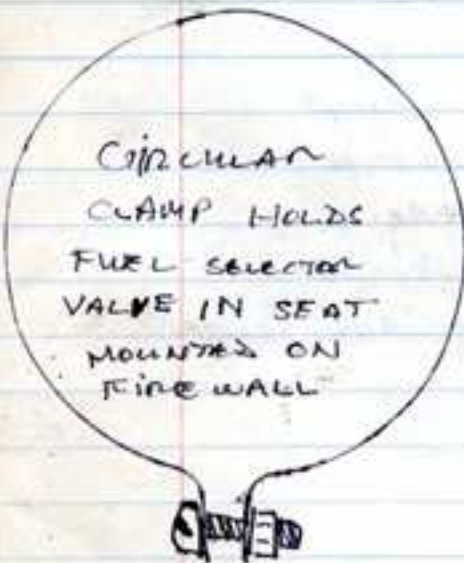 CIRCULAR
CLAMP HOLDS
FUEL SELECTOR
VALVE IN SEAT
MOUNTED ON
FIREWALL